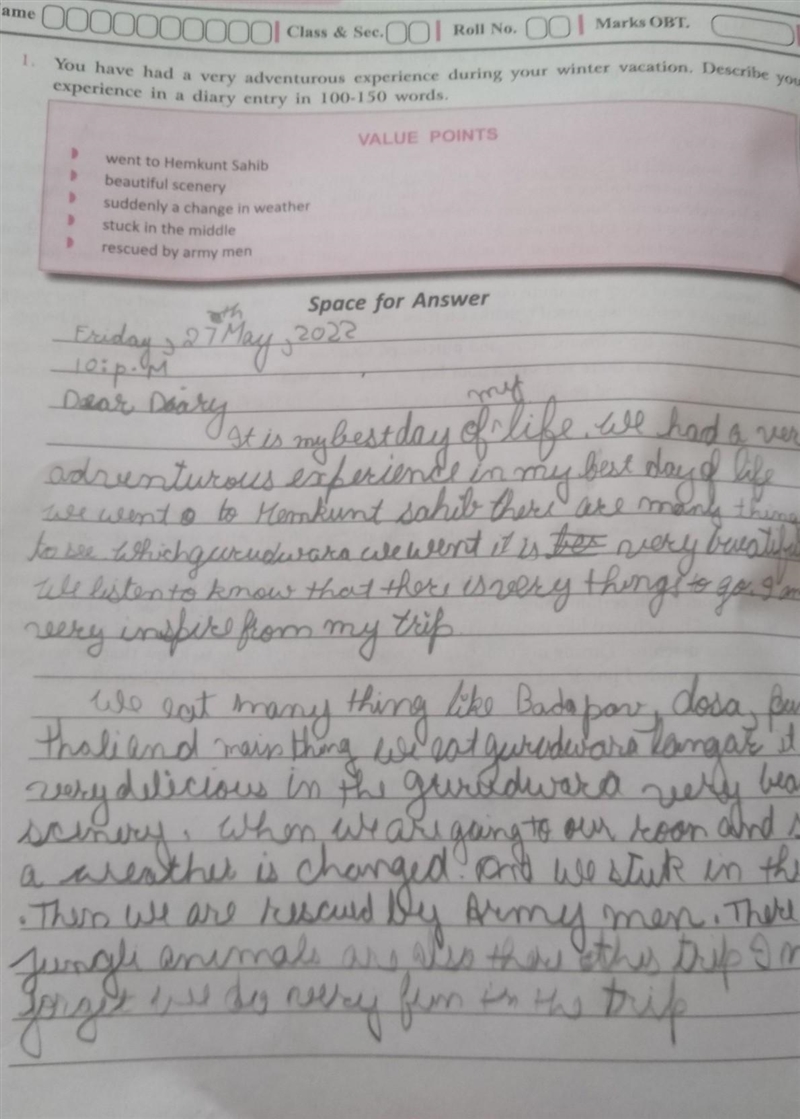 ame Class & Sec. Roll No. Marks OBT.
1. You have had a very adventurous experience during your winter vacation. Describe you
experience in a diary entry in 100-150 words.
VALUE POINTS
went to Hemkunt Sahib
beautiful scenery
suddenly a change in weather
stuck in the middle
rescued by army men
Space for Answer
Friday, 27th May, 2022
10:p.M
Dear Diary
It is my best day of my life. We had a ver
adventurous experience in my best day of life
we went to Hemkunt sahib there are many thing
to see which gurudwara we went it is very
We listen to know that there is very things to go. I am
very inspire from my trip
We eat many thing like Badapav, dosa,
thali and main thing we eat gurudwara langar it
very delicious in the gurudwara very bea
scinery. When we are going to our room and s
a weather is changed. And we stuk in the
. Then we are rescued by Army men. There
jungle animals are also there this trip I n
forget we do very fun in the trip